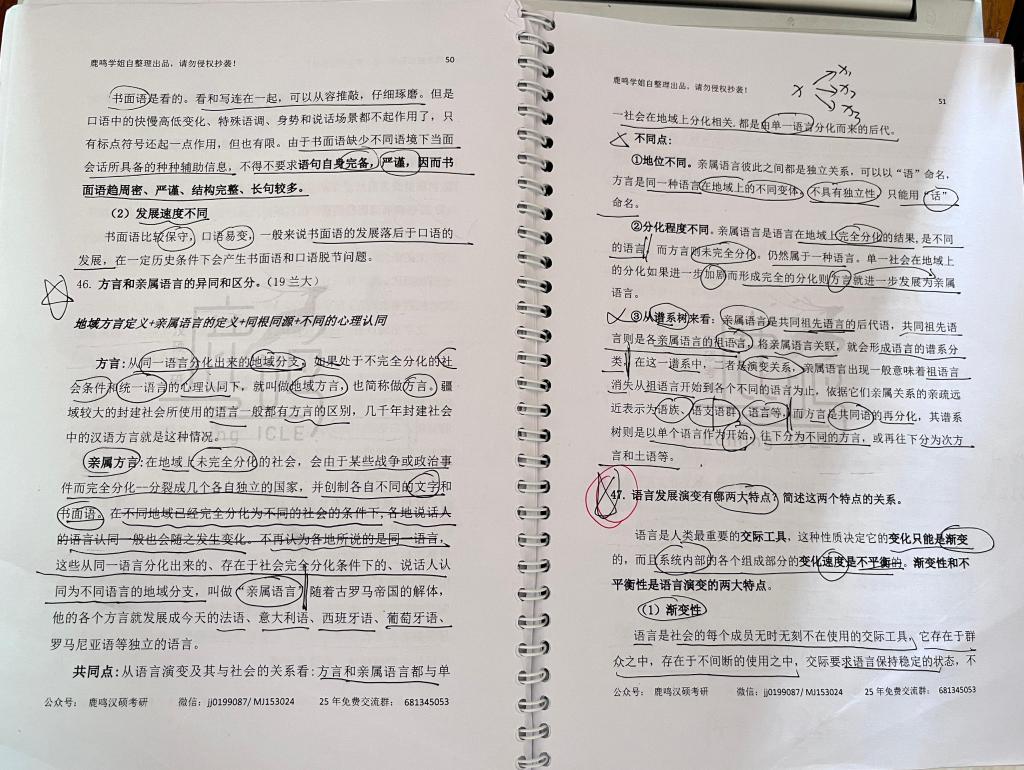 鹿鸣学姐自整理出品，请勿侵权抄袭！ 50
书面语是看的。看和写连在一起，可以从容推敲，仔细琢磨。但是
口语中的快慢高低变化、特殊语调、身势和说话场景都不起作用了，只
有标点符号还起一点作用，但也有限。由于书面语缺少不同语境下当面
会话所具备的种种辅助信息，不得不要求语句自身完备，严谨，因而书
面语趋周密、严谨、结构完整、长句较多。
（2）发展速度不同
书面语比较保守，口语易变，一般来说书面语的发展落后于口语的
发展，在一定历史条件下会产生书面语和口语脱节问题。
46. 方言和亲属语言的异同和区分。（19 兰大）
地域方言定义+亲属语言的定义+同根同源+不同的心理认同
方言：从同一语言分化出来的地域分支，如果处于不完全分化的社
会条件和统一语言的心理认同下，就叫做地域方言，也简称做方言。疆
域较大的封建社会所使用的语言一般都有方言的区别，几千年封建社会
中的汉语方言就是这种情况。
亲属方言：在地域上未完全分化的社会，会由于某些战争或政治事
件而完全分化一分裂成几个各自独立的国家，并创制各自不同的文字和
书面语。在不同地域已经完全分化为不同的社会的条件下，各地说话人
的语言认同一般也会随之发生变化。不再认为各地所说的是同一语言，
这些从同一语言分化出来的、存在于社会完全分化条件下的、说话人认
同为不同语言的地域分支，叫做“亲属语言”随着古罗马帝国的解体，
他的各个方言就发展成今天的法语、意大利语、西班牙语、葡萄牙语、
罗马尼亚语等独立的语言。
共同点：从语言演变及其与社会的关系看：方言和亲属语言都与单
公众号： 鹿鸣汉硕考研 微信：jj0199087/ MJ153024 25 年免费交流群： 681345053
鹿鸣学姐自整理出品，请勿侵权抄袭！ 51
x x₁ x₂ x₃
一社会在地域上分化相关，都是由单一语言分化而来的后代。
不同点：
①地位不同。亲属语言彼此之间都是独立关系，可以以“语”命名，
方言是同一种语言在地域上的不同变体，不具有独立性，只能用“话”
命名。
②分化程度不同。亲属语言是语言在地域上完全分化的结果，是不同
的语言，而方言则未完全分化。仍然属于一种语言。单一社会在地域上
的分化如果进一步加剧而形成完全的分化则方言就进一步发展为亲属
语言。
③从谱系树来看：亲属语言是共同祖先语言的后代语，共同祖先语
言则是各亲属语言的祖语言，将亲属语言关联，就会形成语言的谱系分
类，在这一谱系中，二者是演变关系，亲属语言出现一般意味着祖语言
消失从祖语言开始到各个不同的语言为止，依据它们亲属关系的亲疏远
近表示为语族、语支语群、语言等，而方言是共同语的再分化，其谱系
树则是以单个语言作为开始，往下分为不同的方言，或再往下分为次方
言和土语等。
47. 语言发展演变有哪两大特点？简述这两个特点的关系。
语言是人类最重要的交际工具，这种性质决定它的变化只能是渐变
的，而且系统内部的各个组成部分的变化速度是不平衡的。渐变性和不
平衡性是语言演变的两大特点。
（1）渐变性
语言是社会的每个成员无时无刻不在使用的交际工具，它存在于群
众之中，存在于不间断的使用之中，交际要求语言保持稳定的状态，不
公众号： 鹿鸣汉硕考研 微信：jj0199087/ MJ153024 25 年免费交流群： 681345053